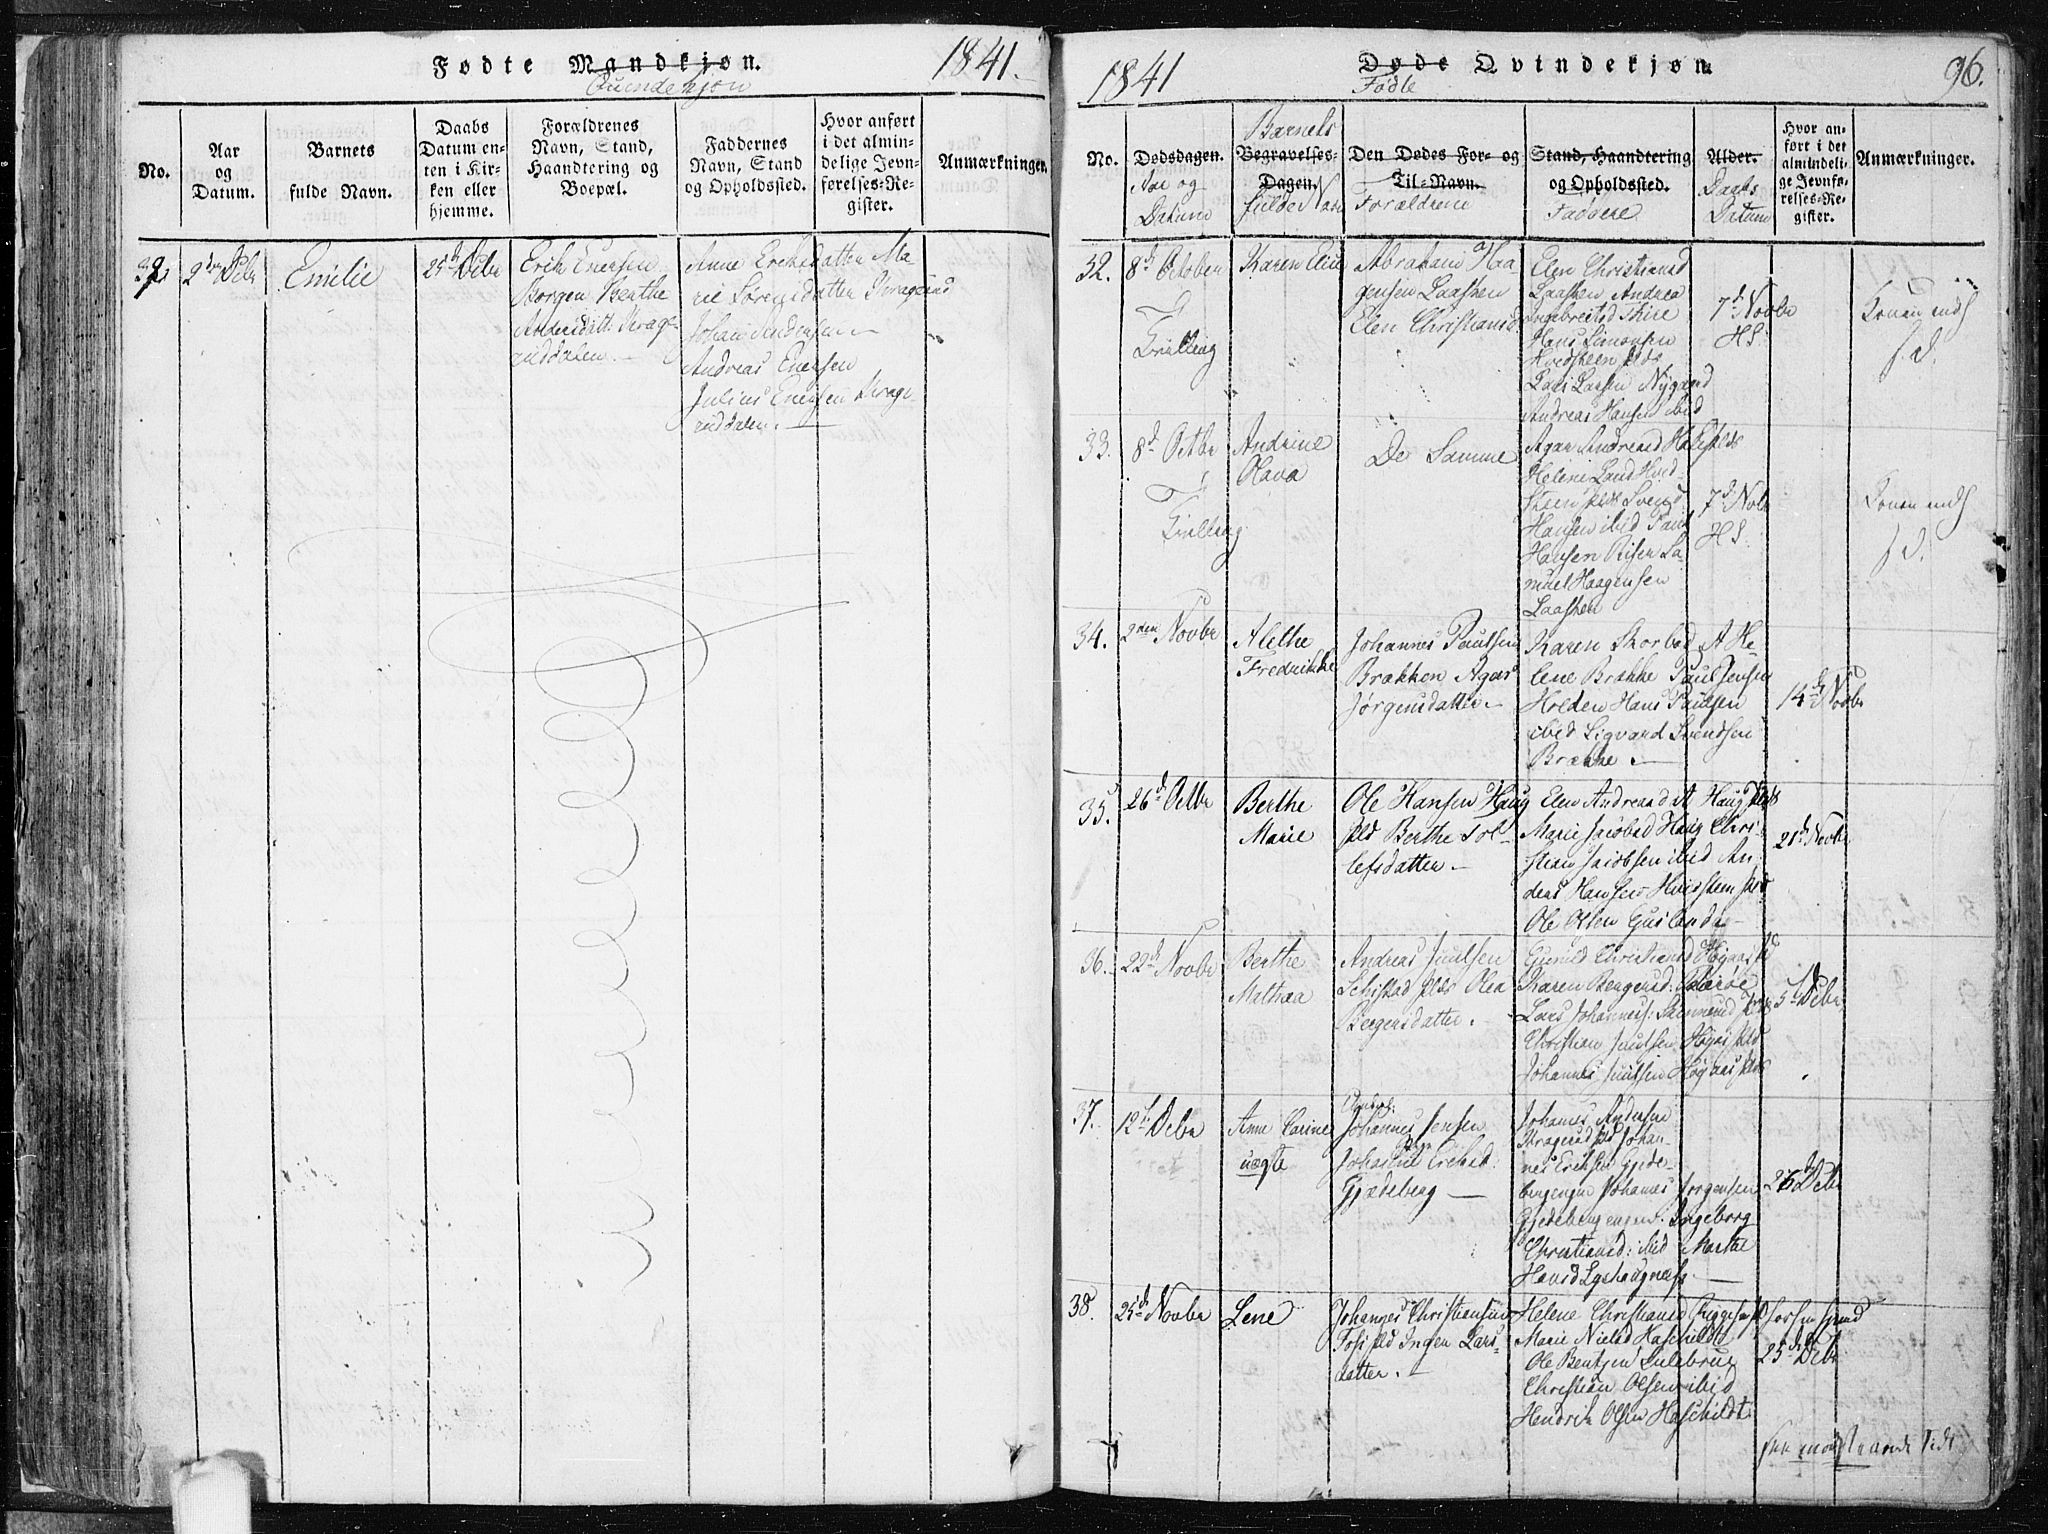 Fødte Mandkjøn. 1841.
Quindekjøn
No.
Aar og Datum.
Barnets fulde Navn.
Daabs Datum enten i Kirken eller hjemme.
Forældrenes Navn, Stand, Haandtering og Boepæl.
Faddernes Navn, Stand og Opholdssted.
Hvor anført i det almindelige Jevnførelses-Register.
Anmærkninger.
39
2den Decbr
Emilie
25d Decbr
Erik Enersen
Borgen Berthe
Andersdatt: Krage-
ruddalen.
Anne Eriksdatter Ma-
rie Sørensdatter Kragerud
Johan Andersen
Andreas Enersen
Julius Enersen Krage-
ruddalen.
1841 Døde Qvindekjøn 96.
Fødte
No.
Dødsdagen.
Aar og
Datum
Barnets
Begravelses-Dagen.
fulde Navn
Den Dødes For- og Til-Navn.
Forældrene
Stand, Haandtering og Opholdssted.
Faddere
Alder.
Daabs
Datum
Hvor anført i det almindelige Jevnførelses-Register.
Anmærkninger.
32.
8d October
Tvilling
Karen Eline
Abraham Haa-
gensen Laashen
Elen Christiansd
Elen Christiansd
Laashen Andrea
Ingebretsd
Hans Simonsen
Hvidsteen plds
Lars Larsen Nygaard
Andreas Hansen ibid
7d Novbr
HS.
Konen inds
s. d.
33.
8d Octbr
Tvilling
Andrine
Olava
De Samme
Agar Andreasd
Helene Hvid-
steen plds Svend
Hansen ibid Paul
Hansen Riisen Sa-
muel Haagensen
Laashen
7d Novbr
HS.
Konen inds
s. d.
34.
2den Novbr
Alethe
Fredrikke
Johannes Paulsen
Brækken Agar
Jørgensdatter.
Karen He-
lene Brække Paul Jensen
Holden Hans Paulsen
ibid Sigvard Svendsen
Brække.
14d Novbr
35.
26d Octbr
Berthe
Marie
Ole Hansen Haug
pld Berthe Tol-
lefsdatter.
Elen Andreasd Haug plds
Marie Jacobsd Haug Chri-
stian Jacobsen ibid An-
ders Hansen Hvidsteen plds
Ole Olsen Guslund
21d Novbr
36.
22d Novbr
Berthe
Mathea
Andreas Juulsen
Schistad plds Olea
Børgersdatter.
Gunild Christiansd Høgaas pld
Karen Børgersd:
Lars Johanness:
Christian Juulsen Høgaas pld
Johannes Juulsen Høgaas plds
5d Decbr
37.
12t Decbr
Anne Carine
uægte
Johannes Jensen
Eriksd:
Gjædeberg
Johanes Andersen
Kragerud pld Johan-
nes Eriksen Gjede-
bergengen Johannes Jørgensen
Gjedebergengen. Ingeborg
Christiansd: ibid Marthe
Hansd
26d Decbr
38.
25d Novbr
Lene
Johannes Christiansen
Foss pld Inger Lars-
datter.
Helene Christiansd
Marie Nielsd Haschildt
Ole Bentzen
Christian Olsen ibid
Hendrik Olsen Haschildt
25d Decbr
see modstaaende Side